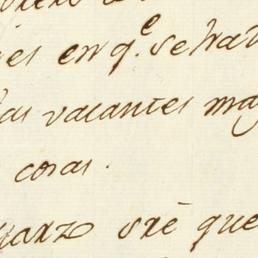 es en q.e se hal
las vacantes ma
cosas.
marzo sre que